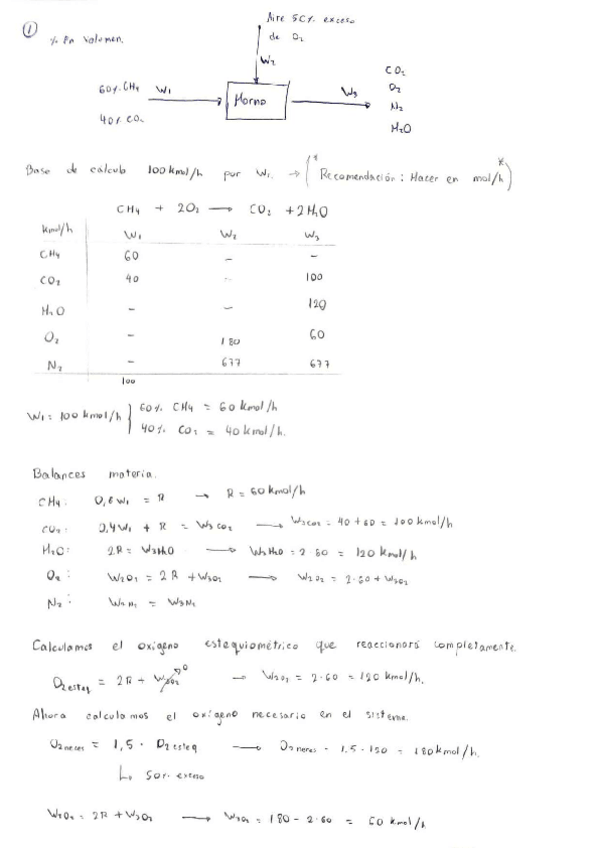 ① % En Volumen.
Aire 50% exceso
de O₂
W₂
60% CH₄ W₁
40% CO₂
Horno
W₃
CO₂
O₂
N₂
H₂O
Base de cálculo 100 kmol/h por W₁. → (* Recomendación: Hacer en mol/h *)
CH₄ + 2O₂ → CO₂ + 2H₂O
kmol/h W₁ W₂ W₃
CH₄ 60 - -
CO₂ 40 - 100
H₂O - - 120
O₂ - 180 60
N₂ - 677 677
100
W₁ = 100 kmol/h { 60% CH₄ = 60 kmol/h
40% CO₂ = 40 kmol/h.
Balances materia.
CH₄: 0,6W₁ = R → R = 60 kmol/h
CO₂: 0,4W₁ + R = W₃CO₂ → W₃CO₂ = 40 + 60 = 100 kmol/h
H₂O: 2R = W₃H₂O → W₃H₂O = 2·60 = 120 kmol/h
O₂: W₂O₂ = 2R + W₃O₂ → W₂O₂ = 2·60 + W₃O₂
N₂: W₂N₂ = W₃N₂
Calculamos el oxígeno estequiométrico que reaccionará completamente.
O₂ esteq = 2R + W₃O₂ 0 → W₂O₂ = 2·60 = 120 kmol/h.
Ahora calculamos el oxígeno necesario en el sistema.
O₂ neces = 1,5 · O₂ esteq → O₂ neces = 1.5·120 = 180 kmol/h.
↳ 50% exceso
W₂O₂ = 2R + W₃O₂ → W₃O₂ = 180 - 2·60 = 60 kmol/h